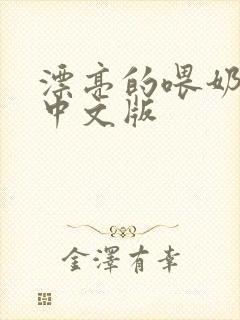 漂亮的喂奶
中文版
金澤有幸